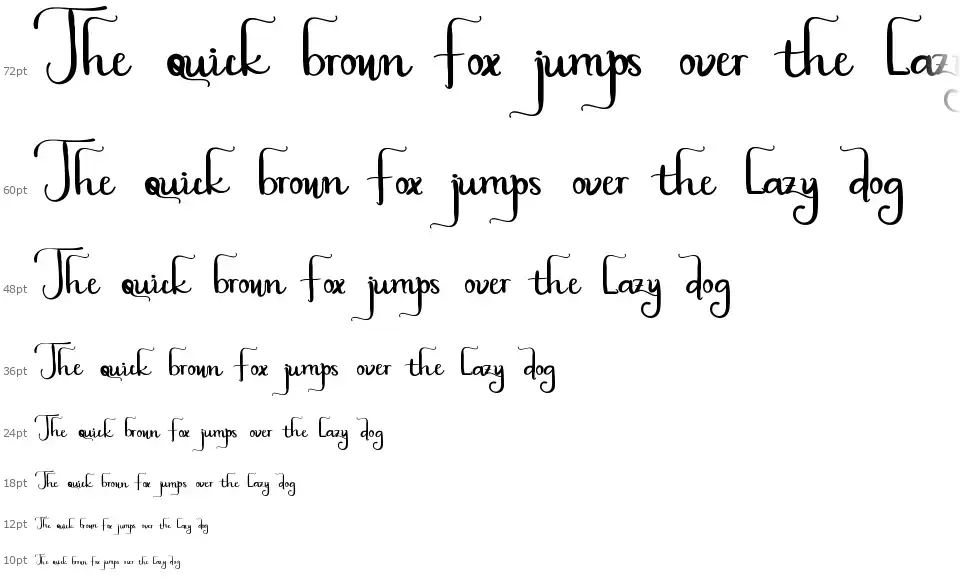 72pt The quick brown fox jumps over the Laz
60pt The quick brown fox jumps over the Lazy dog
48pt The quick brown fox jumps over the Lazy dog
36pt The quick brown fox jumps over the Lazy dog
24pt The quick brown fox jumps over the Lazy dog
18pt The quick brown fox jumps over the Lazy dog
12pt The quick brown fox jumps over the Lazy dog
10pt The quick brown fox jumps over the Lazy dog